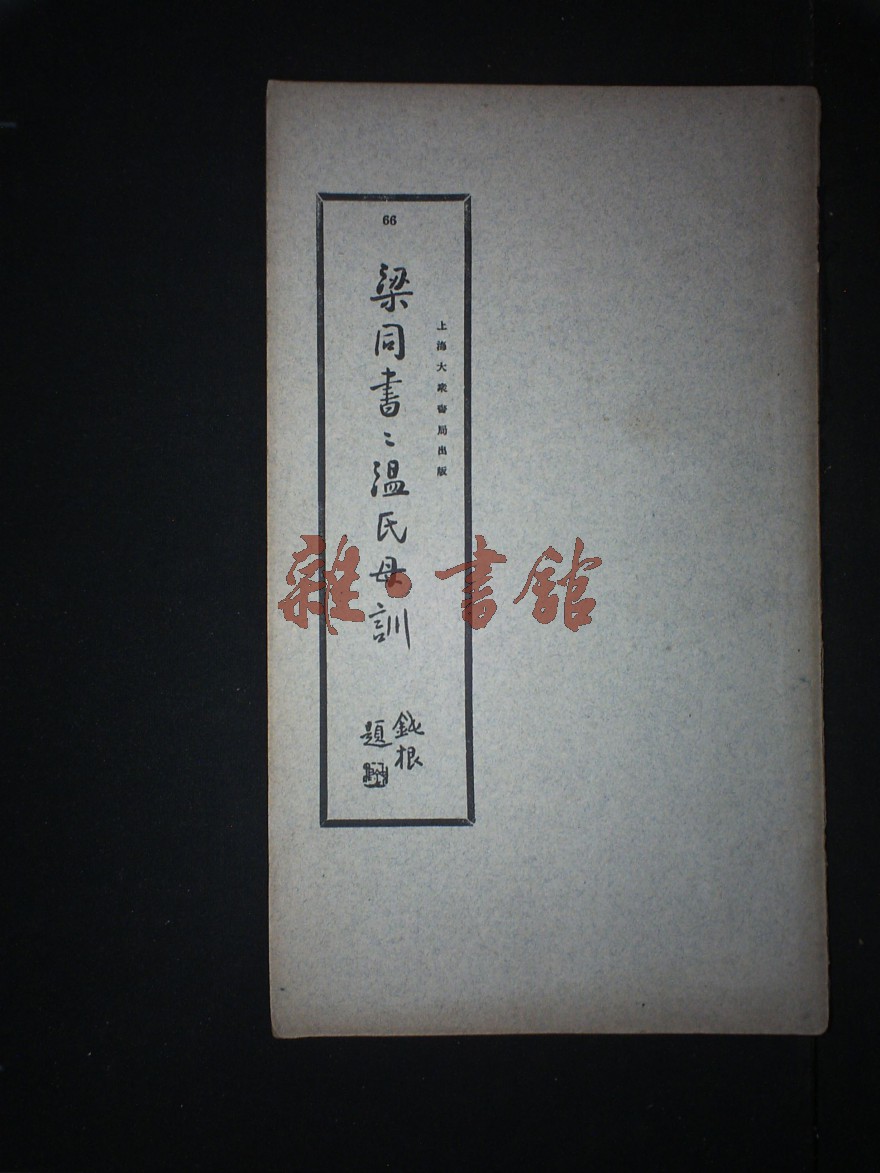 66
上海大衆書局出版
梁同書〻温氏母訓
鈍根
題
雜·書館